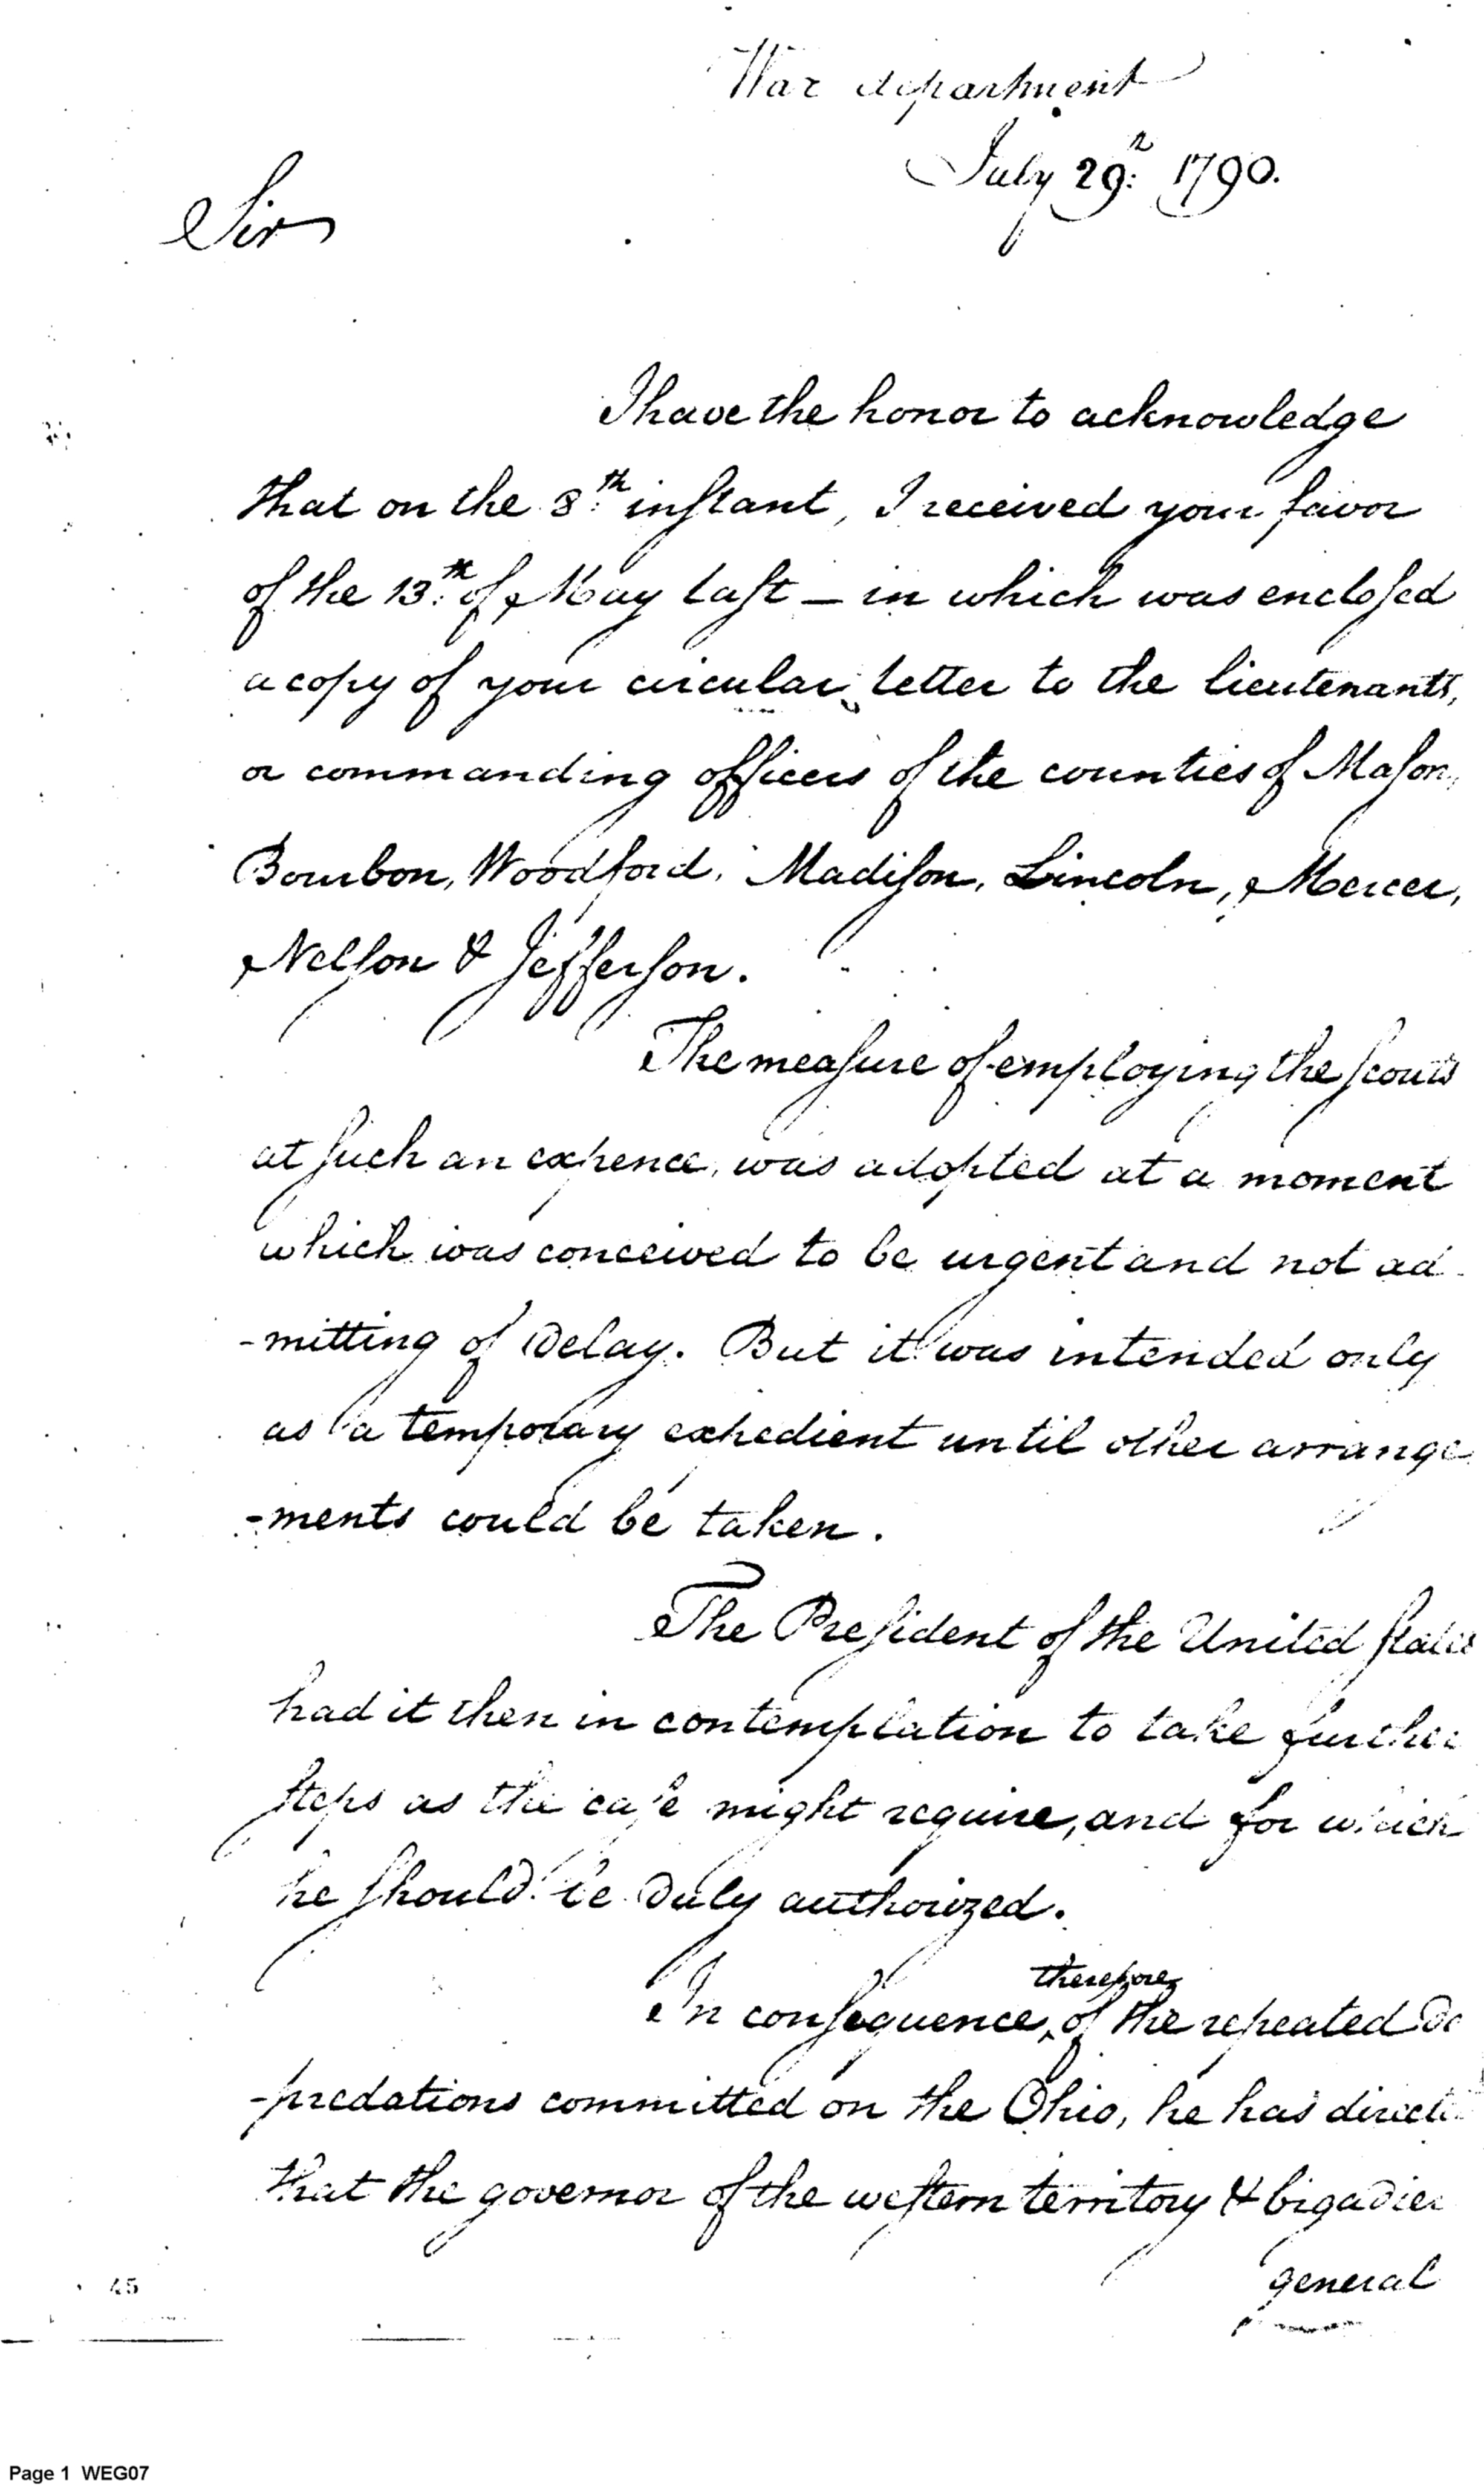 War department
July 29th 1790.
Sir
I have the honor to acknowledge
that on the 8th instant, I received your favor
of the 13th of May last — in which was enclosed
a copy of your circular letter to the lieutenants,
or commanding officers of the counties of Mason,
Bourbon, Woodford, Madison, Lincoln, Mercer,
Nelson & Jefferson.
The measure of employing the scouts
at such an expence, was adopted at a moment
which was conceived to be urgent and not ad-
-mitting of Delay. But it was intended only
as a temporary expedient until other arrange
-ments could be taken.
The President of the United states
had it then in contemplation to take further
steps as the case might require, and for which
he should be Duly authorized.
therefore
In consequence, of the repeated De
-predations committed on the Ohio, he has directed
that the governor of the western territory & brigadier
general
45
Page 1 WEG07